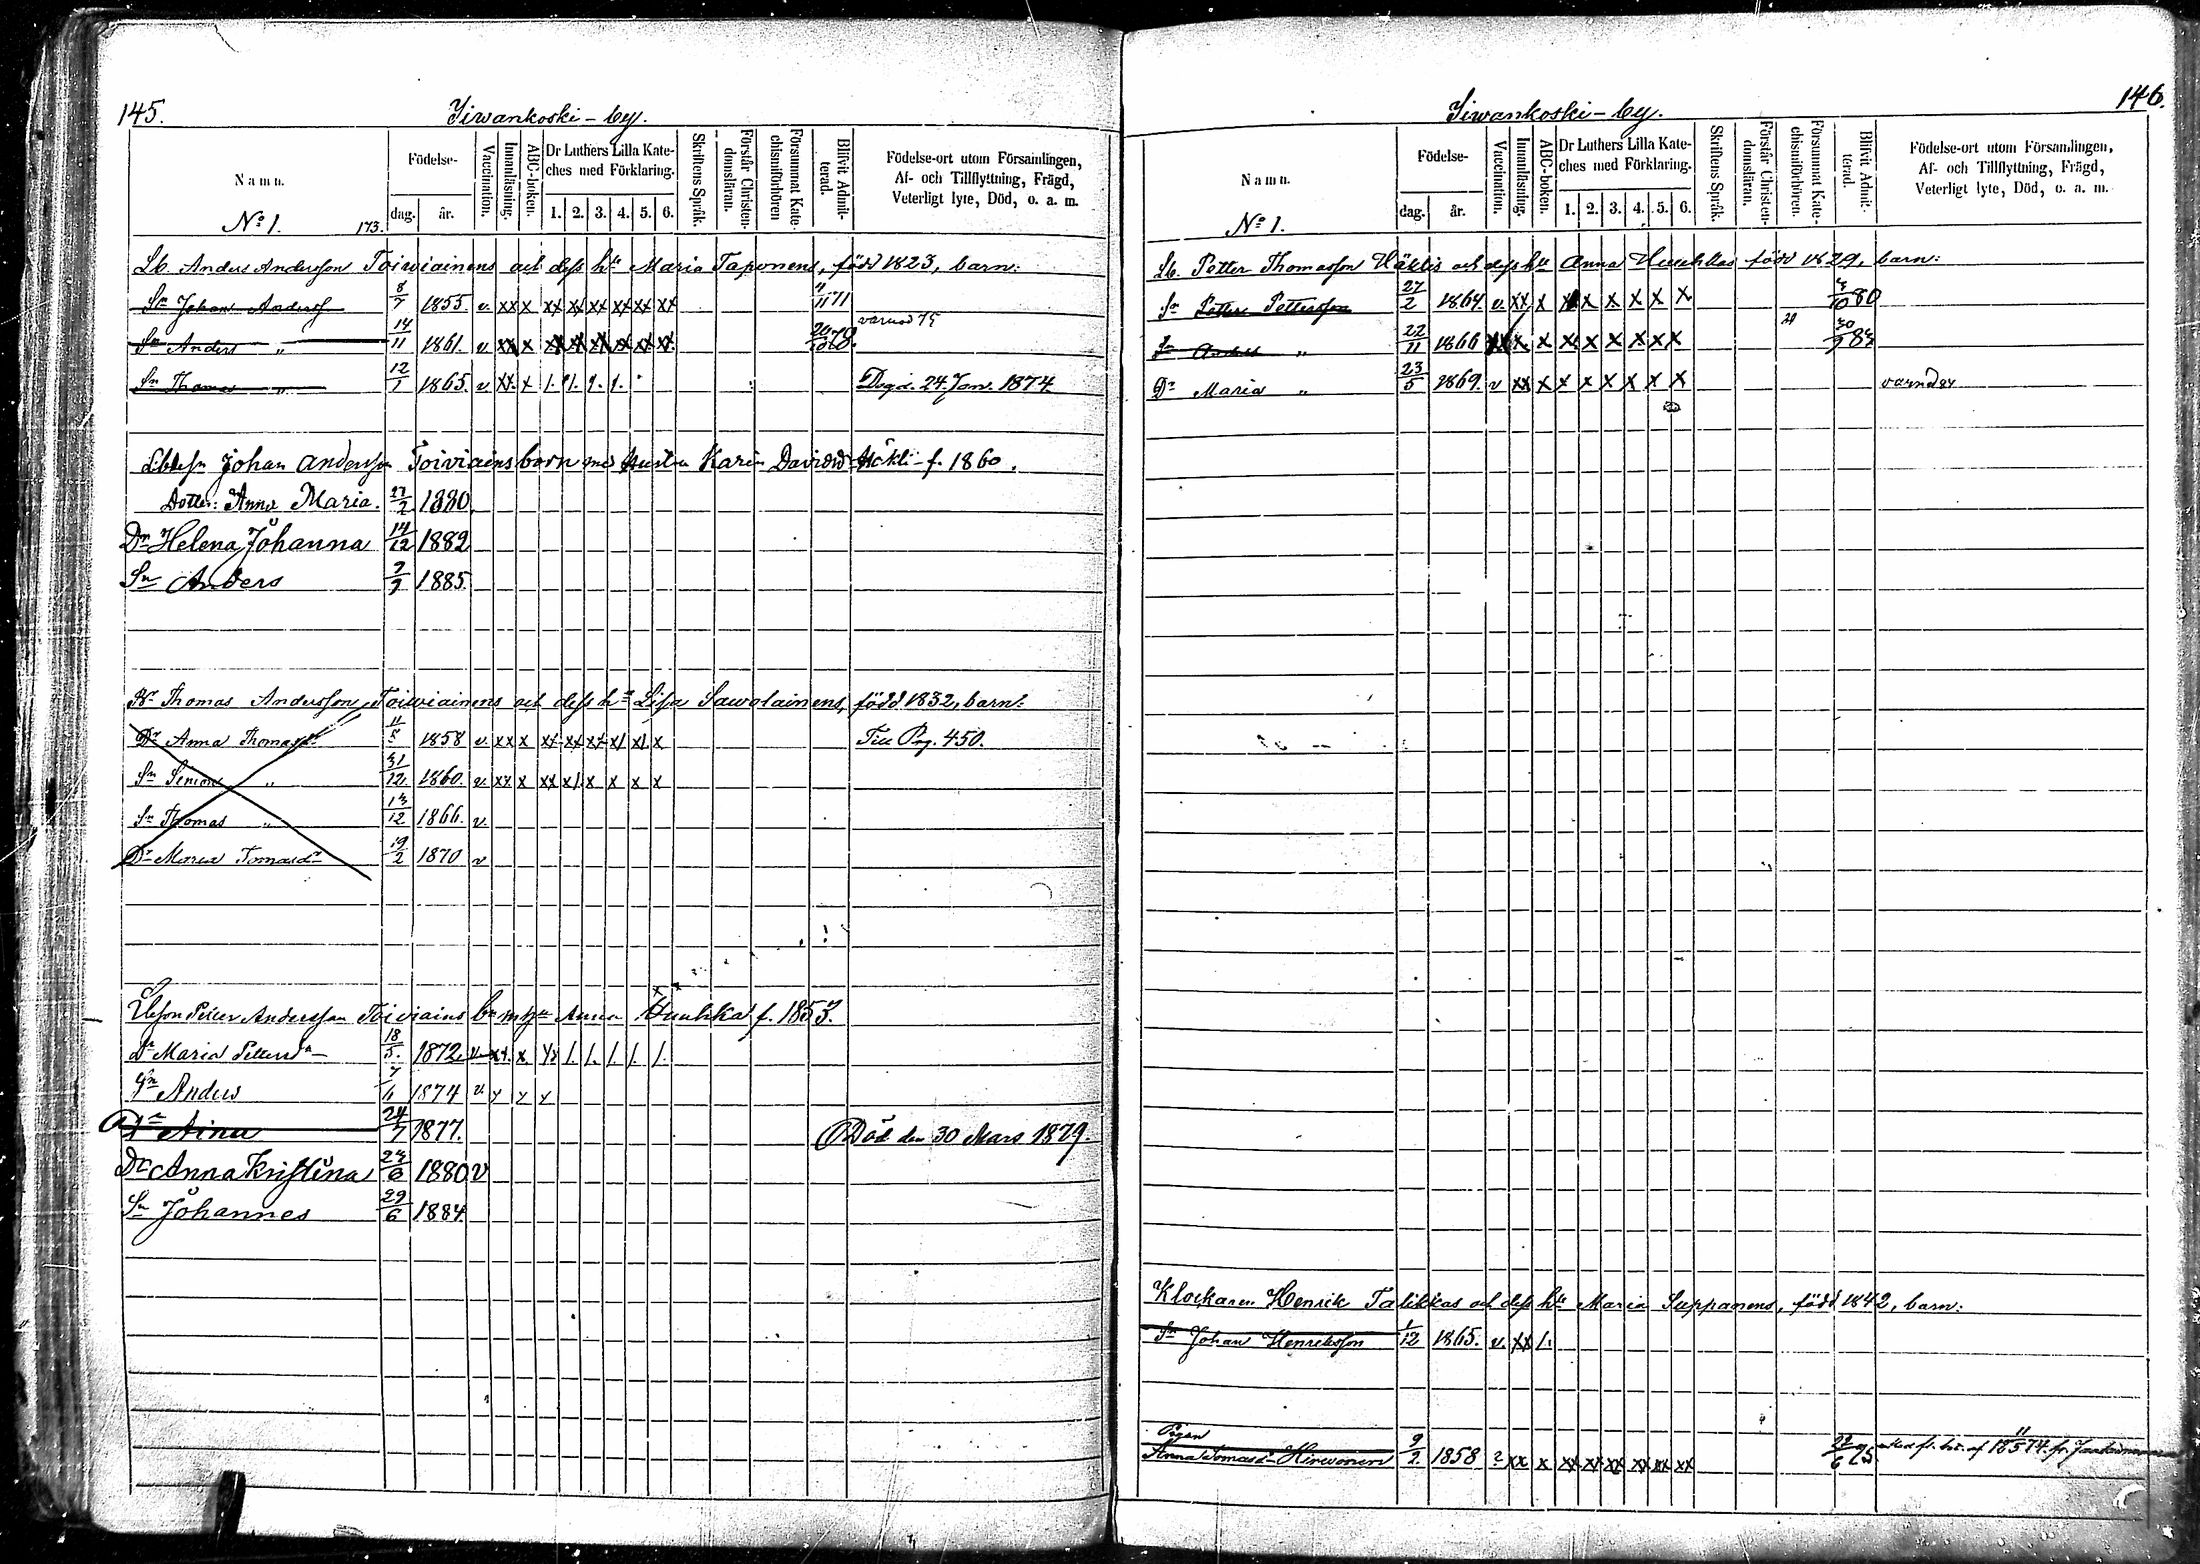 145.
Siwankoski-by.
Namn.
Födelse-
dag.
år.
Vaccination.
Innanläsning.
ABC-boken.
Dr Luthers Lilla Kate-
ches med Förklaring.
1. 2. 3. 4. 5. 6.
Skriftens Språk.
Förstår Christen-
domsläran.
Försummat Kate-
chismiförhören
Blifvit Admit-
terad.
Födelse-ort utom Församlingen,
Af- och Tillflyttning, Frägd,
Veterligt lyte, Död, o. a. m.
No 1. 173.
Lb. Anders Andersson Toiwiainens och dess hu Maria Taponens, född 1823, barn:
Sn Johan Anderss 8/7 1855. v. xx x xx xx xx xx xx xx 4/11 71
Sn Anders " 14/11 1861. v. xx x xx xx xx xx xx xx varnad 75
Sn Thomas " 12/1 1865. v xx. x 1. 1. 1. 1. Degd. 24 Jan. 1874
Johan Andersson Toiviains barn med hustru Karin Davidsd Häkli f. 1860.
Dotter: Anna Maria. 27/2 1880
Dr Helena Johanna 14/12 1882
Sn Anders 7/9 1885.
Thomas Andersson Toiwiainens och dess hu Lisa Sawolainens, född 1832, barn:
Dr Anna Thomasdr 11/5 1858 v. xx x xx xx xx x1 x1 x Till Pag. 450.
Sn Simon " 31/12 1860. v. xx x xx x1. x x x x
Sn Thomas " 13/12 1866. v.
Dr Maria Tomasdr 19/2 1870 v
Petter Andersson Toiviains bn m hu Anna Huuhka f. 1853.
Dr Maria Pettersdr 18/5. 1872. v. xx. x. xx 1. 1. 1. 1. 1.
Sn Anders 7/6 1874 v. x x x
Dr Aina 24/7 1877. Död den 30 Mars 1879.
Dr Anna Kristina 23/6 1880 v
Sn Johannes 29/6 1884.
146.
Siwankoski-by.
Namn.
Födelse-
dag.
år.
Vaccination.
Innanläsning.
ABC-boken.
Dr Luthers Lilla Kate-
ches med Förklaring.
1. 2. 3. 4. 5. 6.
Skriftens Språk.
Förstår Christen-
domsläran.
Försummat Kate-
chismiförhören.
Blifvit Admit-
terad.
Födelse-ort utom Församlingen,
Af- och Tillflyttning, Frägd,
Veterligt lyte, Död, o. a. m.
No 1.
Lb. Petter Thomasson Häklis och dess hu Anna Huuhkas född 1829, barn:
Sn Petter Pettersson 27/2 1864 v. xx x x x x x x x 3/10 80
Sn " 22/11 1866 x. x x x x x x x 30/9 83
Dr Maria " 23/5 1869. v xx x x x x x x x varnad 84
Klockaren Henrik Talikkas och dess hu Maria Suppanens, född 1842, barn:
Sn Johan Henriksson 1/12 1865. v. xx 1.
Pigan
Anna Tomasd. Hirvonen 9/2 1858 ? xx x xx xx xx xx xx xx 22/6 75